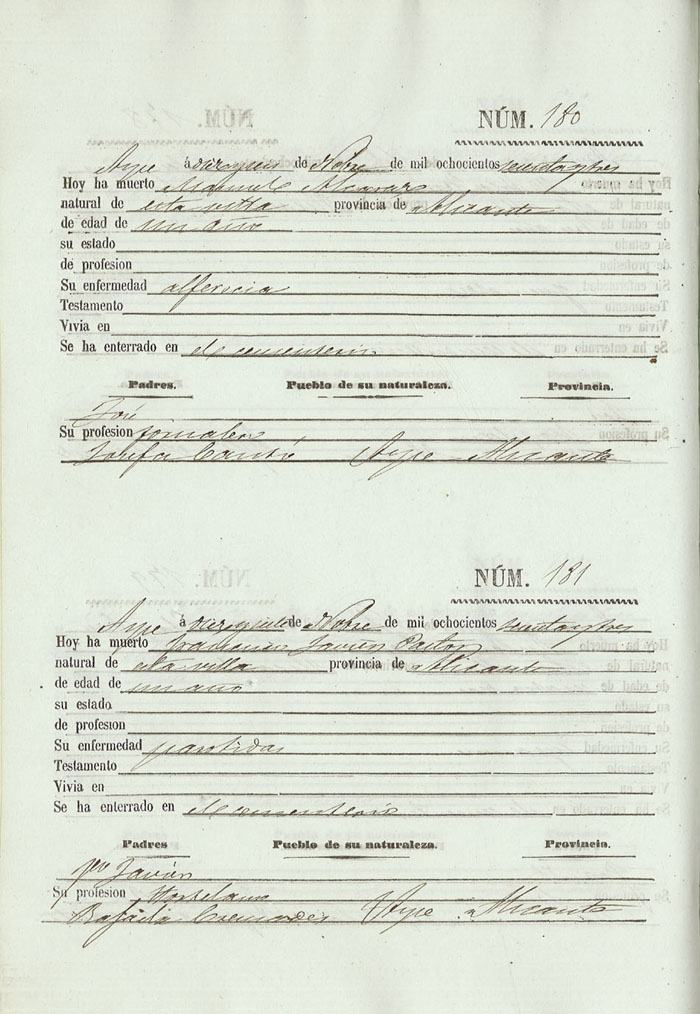 NÚM. 180
Aspe á diez y seis de Nobre de mil ochocientos sesenta y tres
Hoy ha muerto Manuel Alcaraz
natural de esta villa provincia de Alicante
de edad de un año
su estado
de profesion
Su enfermedad alferecia
Testamento
Vivia en
Se ha enterrado en el cementerio
Padres. Pueblo de su naturaleza. Provincia.
José
Su profesion jornalero
Josefa Cantó Aspe Alicante
NÚM. 181
Aspe á diez y siete de Nobre de mil ochocientos sesenta y tres
Hoy ha muerto Francisco Javier Pastor
natural de esta villa provincia de Alicante
de edad de un año
su estado
de profesion
Su enfermedad
Testamento
Vivia en
Se ha enterrado en el cementerio
Padres Pueblo de su naturaleza. Provincia.
Javier
Su profesion Hortelano
Rafaela Cremades Aspe Alicante